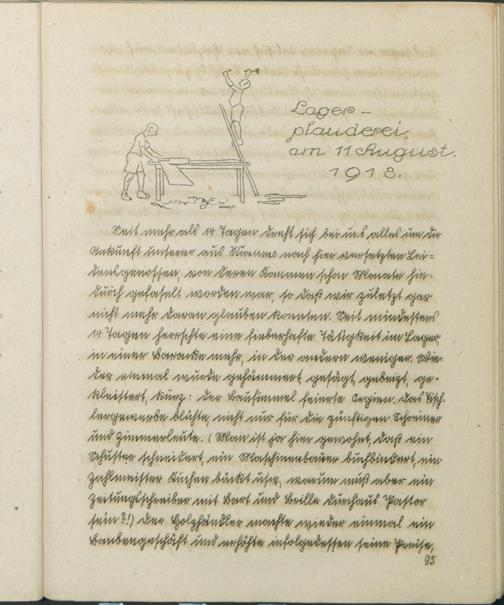 Lager-
plauderei,
am 11. August.
1918.
Seit mehr als 14 Tagen dreht sich bei uns alles um die
Ankunft unserer aus nach hier versetzten Lei-
densgenossen, von deren Kommen schon Monate hin-
durch gefaselt worden war, so daß wir zuletzt gar
nicht mehr daran glauben konnten. Seit mindestens
14 Tagen herrschte eine fieberhafte Tätigkeit im Lager,
in einer Baracke mehr, in der andern weniger. Wie-
der einmal wurde gehämmert, gesägt, gebeizt, ge-
kleistert, kurz: der Baufimmel feierte Orgien. Das Tisch-
lergewerbe blühte, nicht nur für die zünftigen Schreiner
und Zimmerleute. (Man ist ja hier gewohnt, daß ein
Schuster schneidert, ein Maschinenbauer buchbindert, ein
Zahlmeister Kuchen bäckt usw., warum muß aber ein
Zeitungsschreiber mit Bart und Brille durchaus Pastor
sein?!) Der Holzhändler machte wieder einmal ein
Bombengeschäft und erhöhte infolgedessen seine Preise,
95